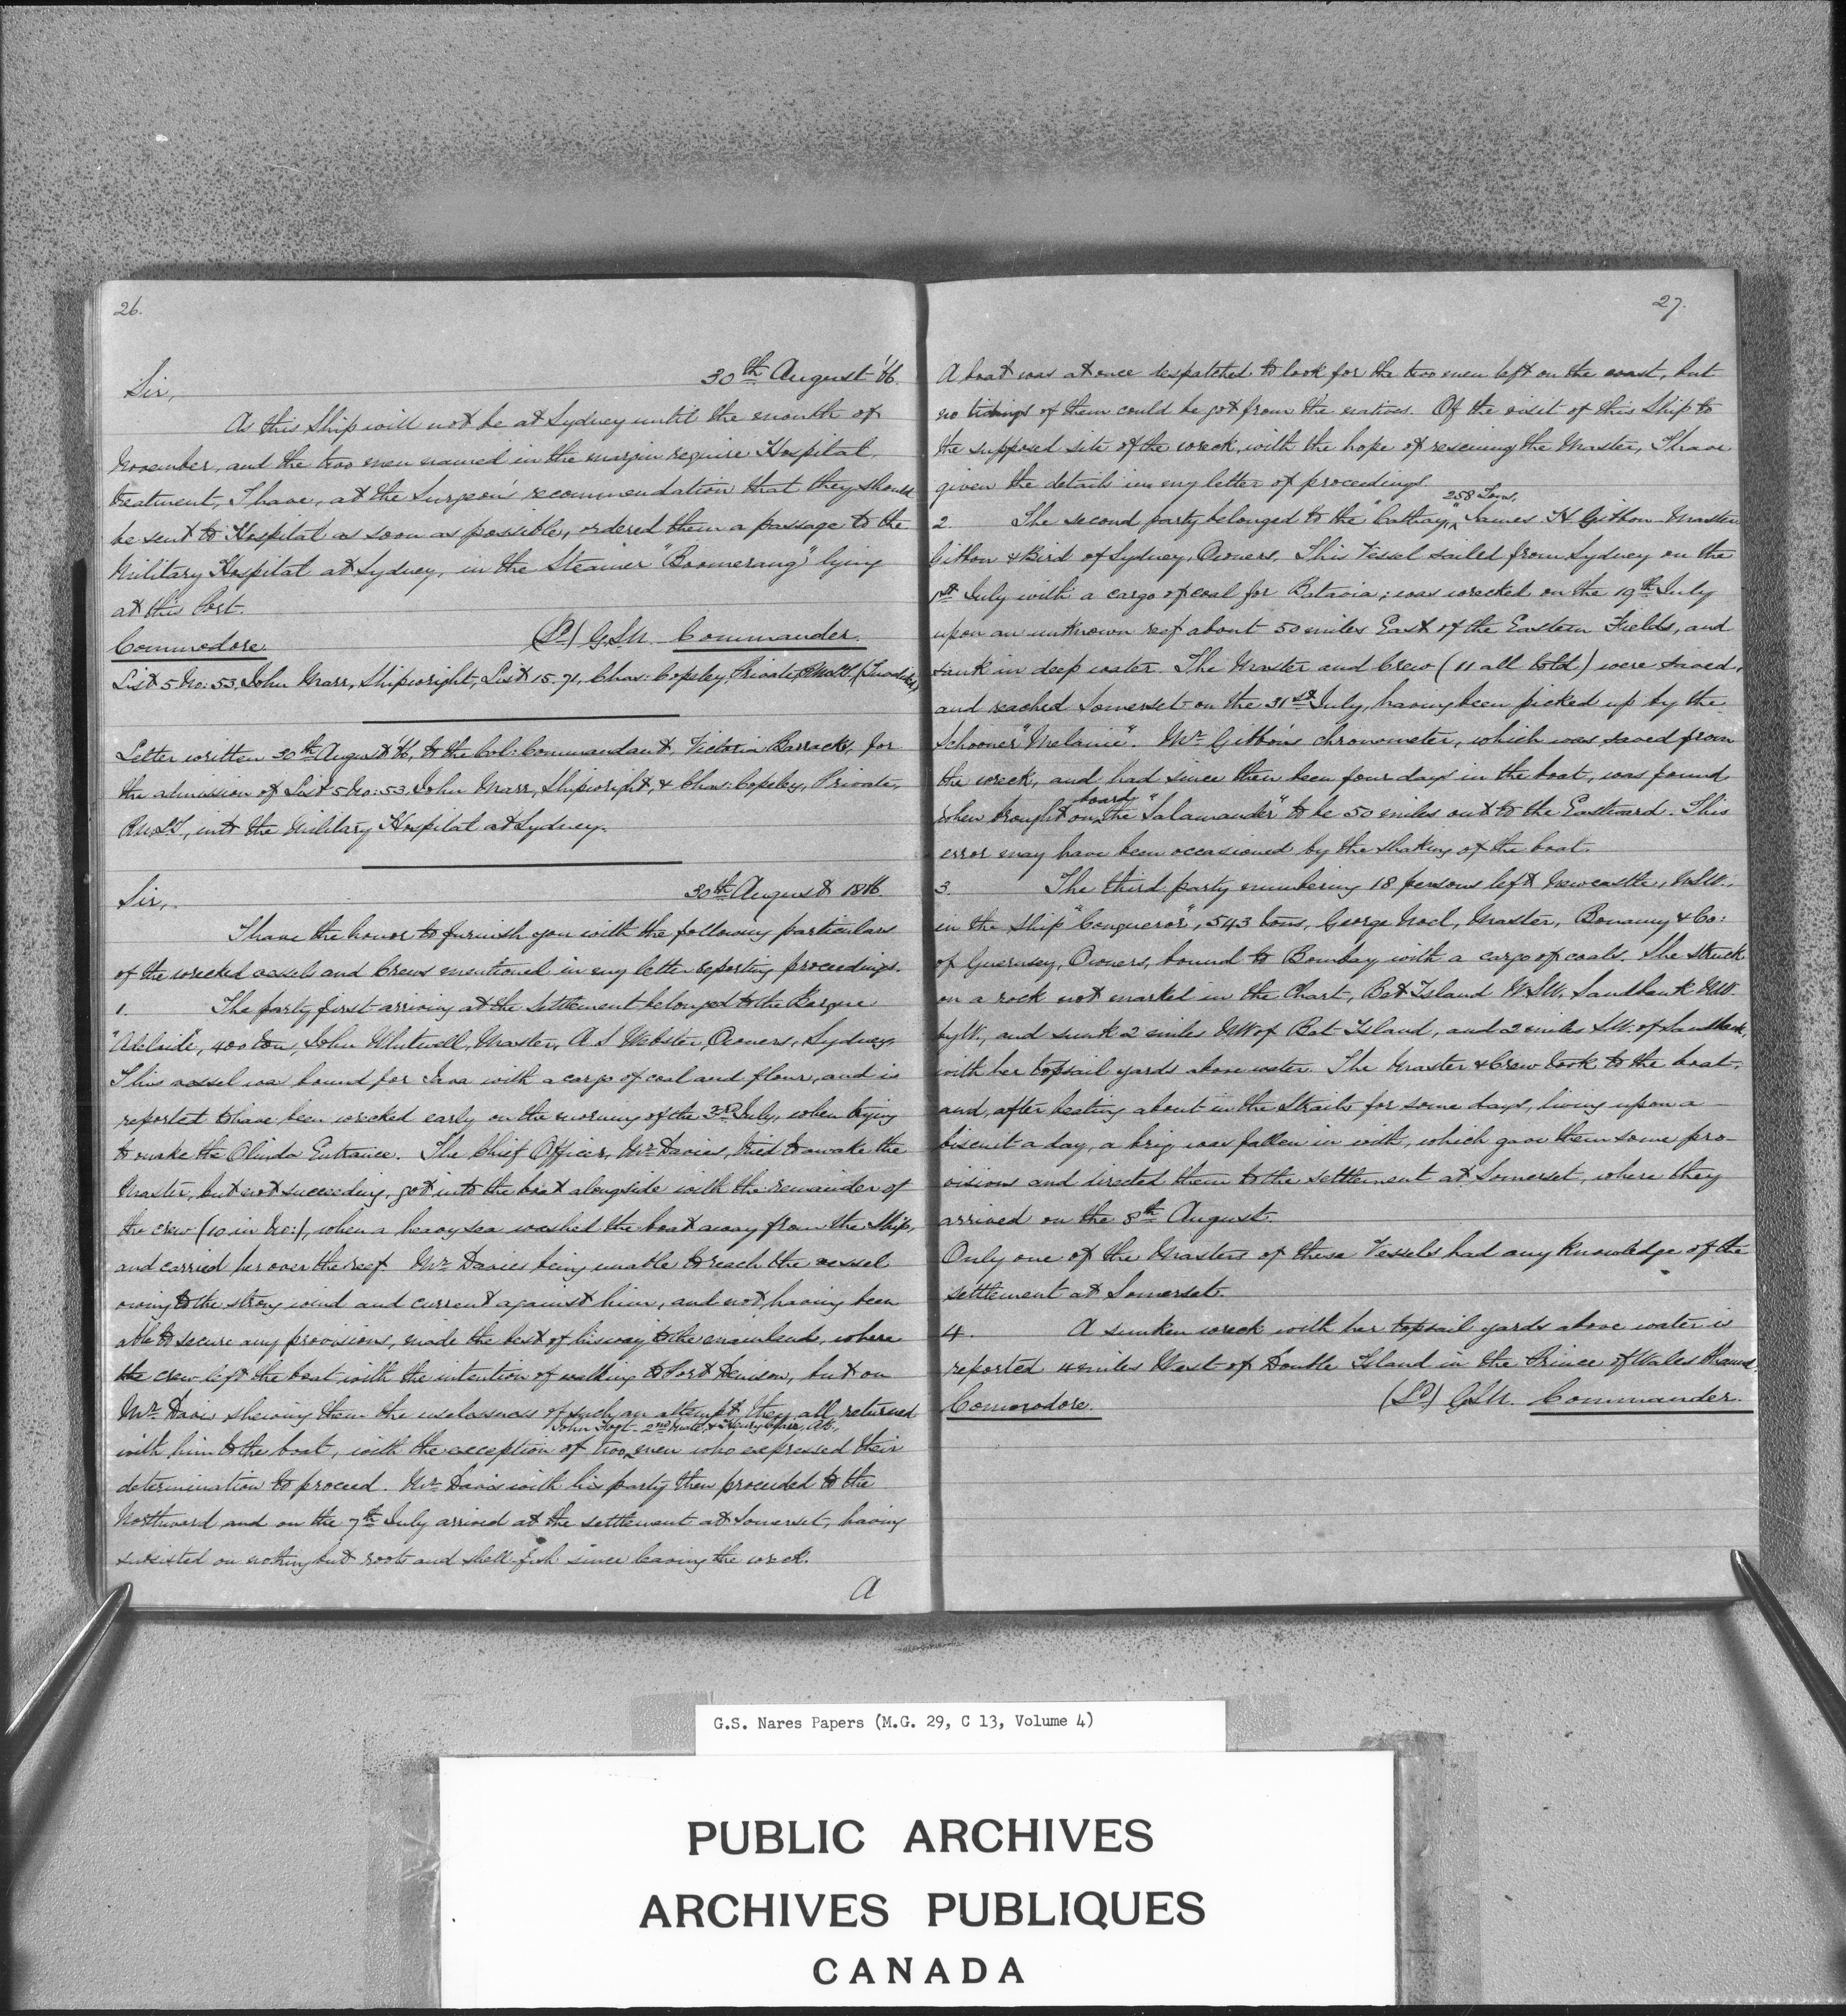 26.
30th August '66.
Sir,
As this Ship will not be at Sydney until the month of
November, and the two men named in the margin require Hospital
treatment, I have, at the Surgeon's recommendation that they should
be sent to Hospital as soon as possible, ordered them a passage to the
Military Hospital at Sydney, in the Steamer "Boomerang" lying
at this Port.
Commodore. (Sd) G.S.N. Commander.
List 5 No: 53. John Marr, Shipwright, List 15. 71. Chas: Copsley, Private, RMLI.
Letter written 30th August '66, to the Col: Commandant, Victoria Barracks, for
the admission of List 5 No: 53 John Marr, Shipwright, & Chas: Copsley, Private,
RMLI, into the Military Hospital at Sydney.
30th August 1866.
Sir,
I have the honor to furnish you with the following particulars
of the wrecked vessels and Crews mentioned in my letter reporting proceedings.
1. The party first arriving at the Settlement belonged to the Barque
"Adelaide", 400 tons, John Whitwell, Master, A. S. Webster, Owners, Sydney.
This vessel was bound for Java with a cargo of coal and flour, and is
reported to have been wrecked early on the morning of the 3rd July, when trying
to make the Olinda Entrance. The Chief Officer, Mr Davies, tried to awake the
Master, but not succeeding, got into the boat alongside with the remainder of
the crew (10 in No:), when a heavy sea washed the boat away from the Ship,
and carried her over the reef. Mr Davies being unable to reach the vessel
owing to the strong wind and current against him, and not having been
able to secure any provisions, made the best of his way to the mainland, where
the crew left the boat, with the intention of walking to Port Denison, but on
Mr Davies shewing them the uselessness of such an attempt, they all returned
John 2nd Mate, & Henry AB,
with him to the boat, with the exception of two men who expressed their
determination to proceed. Mr Davies with his party then proceeded to the
Northward and on the 7th July arrived at the settlement at Somerset, having
subsisted on nothing but roots and shell-fish since leaving the wreck.
A
27.
A boat was at once despatched to look for the two men left on the coast, but
no tidings of them could be got from the natives. Of the visit of this Ship to
the supposed site of the wreck, with the hope of rescuing the Master, I have
given the details in my letter of proceedings.
258 Tons,
2. The second party belonged to the "Cathay," James H Gibbon Master
Gibbon & Bird of Sydney, Owners. This Vessel sailed from Sydney on the
1st July with a cargo of coal for Batavia; was wrecked on the 19th July
upon an unknown reef about 50 miles East of the Eastern Fields, and
sank in deep water. The Master and Crew (11 all told) were saved,
and reached Somerset on the 31st July, having been picked up by the
Schooner "Melanie". Mr Gibbon's chronometer, which was saved from
the wreck, and had since then been four days in the boat, was found
board
when brought on the "Salamander" to be 50 miles out to the Eastward. This
error may have been occasioned by the shaking of the boat.
3. The third party numbering 18 persons left Newcastle, N.S.W.,
in the Ship "Conqueror", 543 tons, George Noel, Master, Bonamy & Co:
of Guernsey, Owners, bound to Bombay with a cargo of coals. She struck
on a rock not marked in the Chart, Bet Island W.S.W. Sandbank NW.
by W., and sunk 2 miles NW of Bet Island, and 2 miles S.W. of Sandbank,
with her topsail yards above water. The Master & Crew took to the boat,
and, after beating about in the Straits for some days, living upon a
biscuit a day, a brig was fallen in with, which gave them some pro-
visions and directed them to the settlement at Somerset, where they
arrived on the 8th August.
Only one of the Masters of these Vessels had any knowledge of the
settlement at Somerset.
4. A sunken wreck with her topsail yards above water is
reported 4 miles West of Double Island in the Prince of Wales Channel.
(Sd) G.S.N. Commander.
Commodore.
G.S. Nares Papers (M.G. 29, C 13, Volume 4)
PUBLIC ARCHIVES
ARCHIVES PUBLIQUES
CANADA